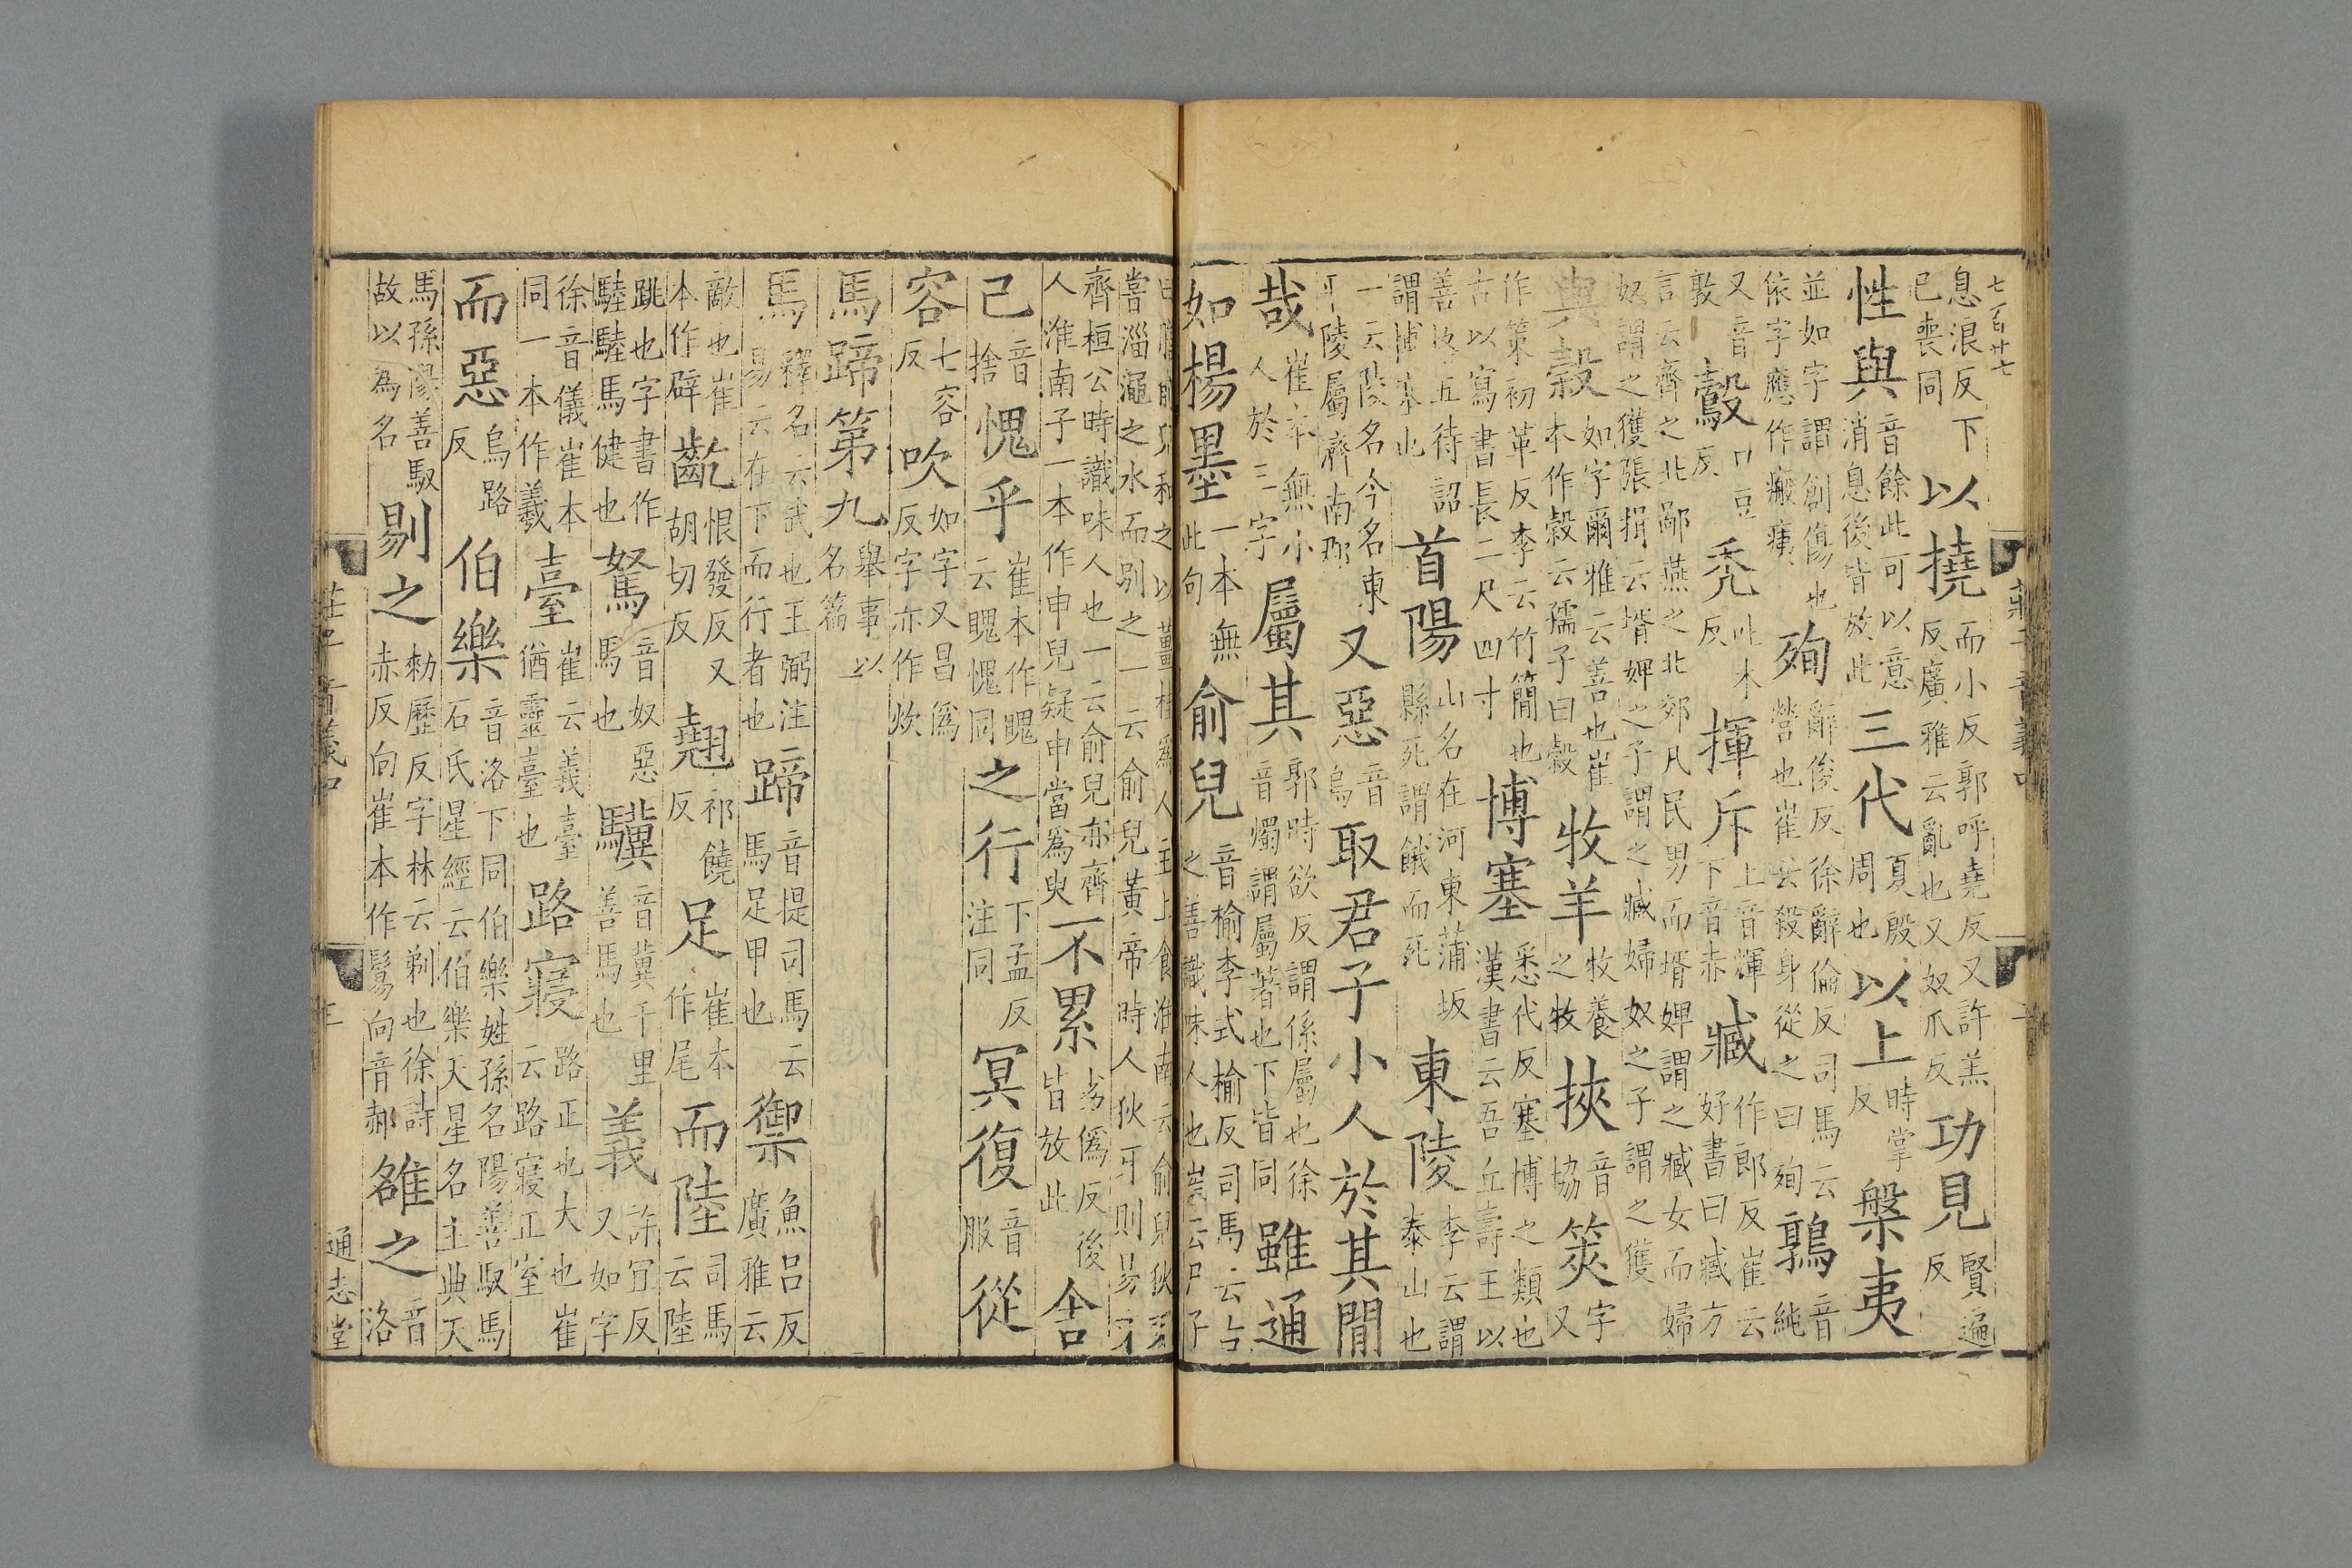 七百廿七
息浪反下已喪同以撓而小反郭呼堯反又許羔反廣雅云亂也又奴爪反功見賢遍反
性與音餘此可以意消息後皆放此三代夏殷周也以上時掌反槃夷
並如字謂創傷也依字應作瘢痍殉辭俊反徐辭倫反司馬云營也崔云殺身從之曰殉鶉音純
又音敦鷇口豆反禿吐木反揮斥上音輝下音赤臧作郎反崔云好書曰臧方
言云齊之北鄙燕之北郊凡民男而壻婢謂之臧女而婦奴謂之獲張揖云壻婢之子謂之臧婦奴之子謂之獲
與穀如字爾雅云善也崔本作穀云孺子曰穀牧羊牧養之牧挾音協筴字又
作策初革反李云竹簡也古以寫書長二尺四寸博塞悉代反塞博之類也漢書云吾丘壽王以
善格五待詔謂博塞也首陽山名在河東蒲坂縣死謂餓而死東陵李云謂泰山也
一云陵名今名東平陵屬濟南郡又惡音烏取君子小人於其閒
哉崔本無小人於三字屬其郭時欲反謂係屬也徐音燭謂屬著也下皆同雖通
如楊墨一本無此句俞兒音榆李式榆反司馬云古之善識味人也崔云尸子
曰膳俞兒和之以薑桂爲人主上食淮南云俞兒狄牙嘗淄澠之水而别之一云俞兒黃帝時人狄牙則易牙
齊桓公時識味人也一云俞兒亦齊人淮南子一本作申兒疑申當爲臾不累劣僞反後皆放此舍
己音捨愧乎崔本作聭云聭愧同之行下孟反注同冥復音服從
容七容反吹如字又昌僞反字亦作炊
馬蹄第九舉事以名篇
馬釋名云武也王弼注易云在下而行者也蹄音提司馬云馬足甲也禦魚呂反廣雅云
敵也崔本作辟齕恨發反又胡切反翹祁饒反足崔本作尾而陸司馬云陸
跳也字書作䮚䮚馬健也駑音奴惡馬也驥音冀千里善馬也義許宜反又如字
徐音儀崔本同一本作羲臺崔云義臺猶靈臺也路寢路正也大也崔云路寢正室
而惡烏路反伯樂音洛下同伯樂姓孫名陽善馭馬石氏星經云伯樂天星名主典天
馬孫陽善馭故以爲名剔之敕歷反字林云剃也徐詩赤反向崔本作鬄向音郝雒之音洛
莊子音義中
通志堂